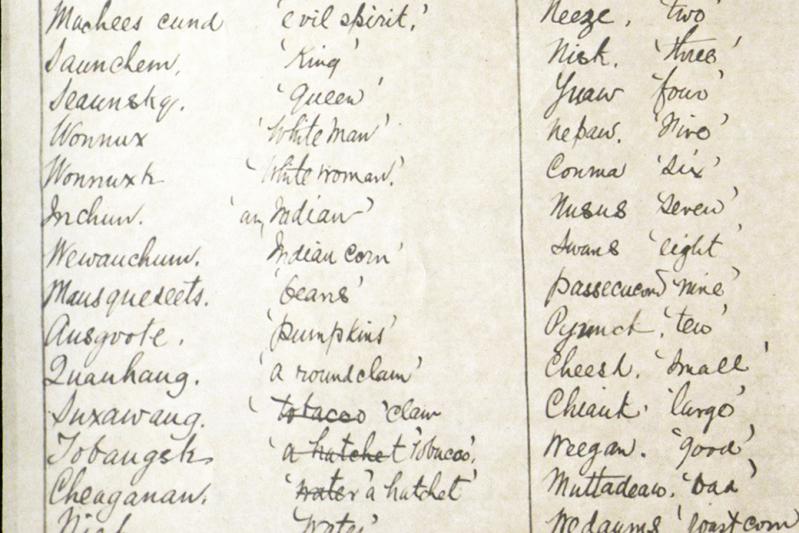 Machees cund 'evil spirit.'
Saunchem, 'King'
Seaunsky. 'Queen'
Wonnux 'White man'
Wonnuxk 'White woman.'
Inchun. 'an Indian'
Wewauchum. 'Indian corn'
Mausqueseets. 'beans'
Ausgoote. 'pumpkins'
Quauhaug. 'a round clam'
Suxawaug. 'tobacco 'clam
Tobaugsk 'a hatchet 'Tobacco'.
Cheaganan. 'water 'a hatchet'
'Water'
Neeze, 'two'
Nisk. 'three'
Yuaw 'four'
nepaw. 'five'
Conma 'six'
Nusus 'seven'
Swans 'eight'
passecucond 'nine'
Pyunck, 'ten'
Cheesh. 'Small'
Chiauk. 'large'
Weegan. 'good'
Muttadeaw. 'bad'
Wedaums 'roast corn'